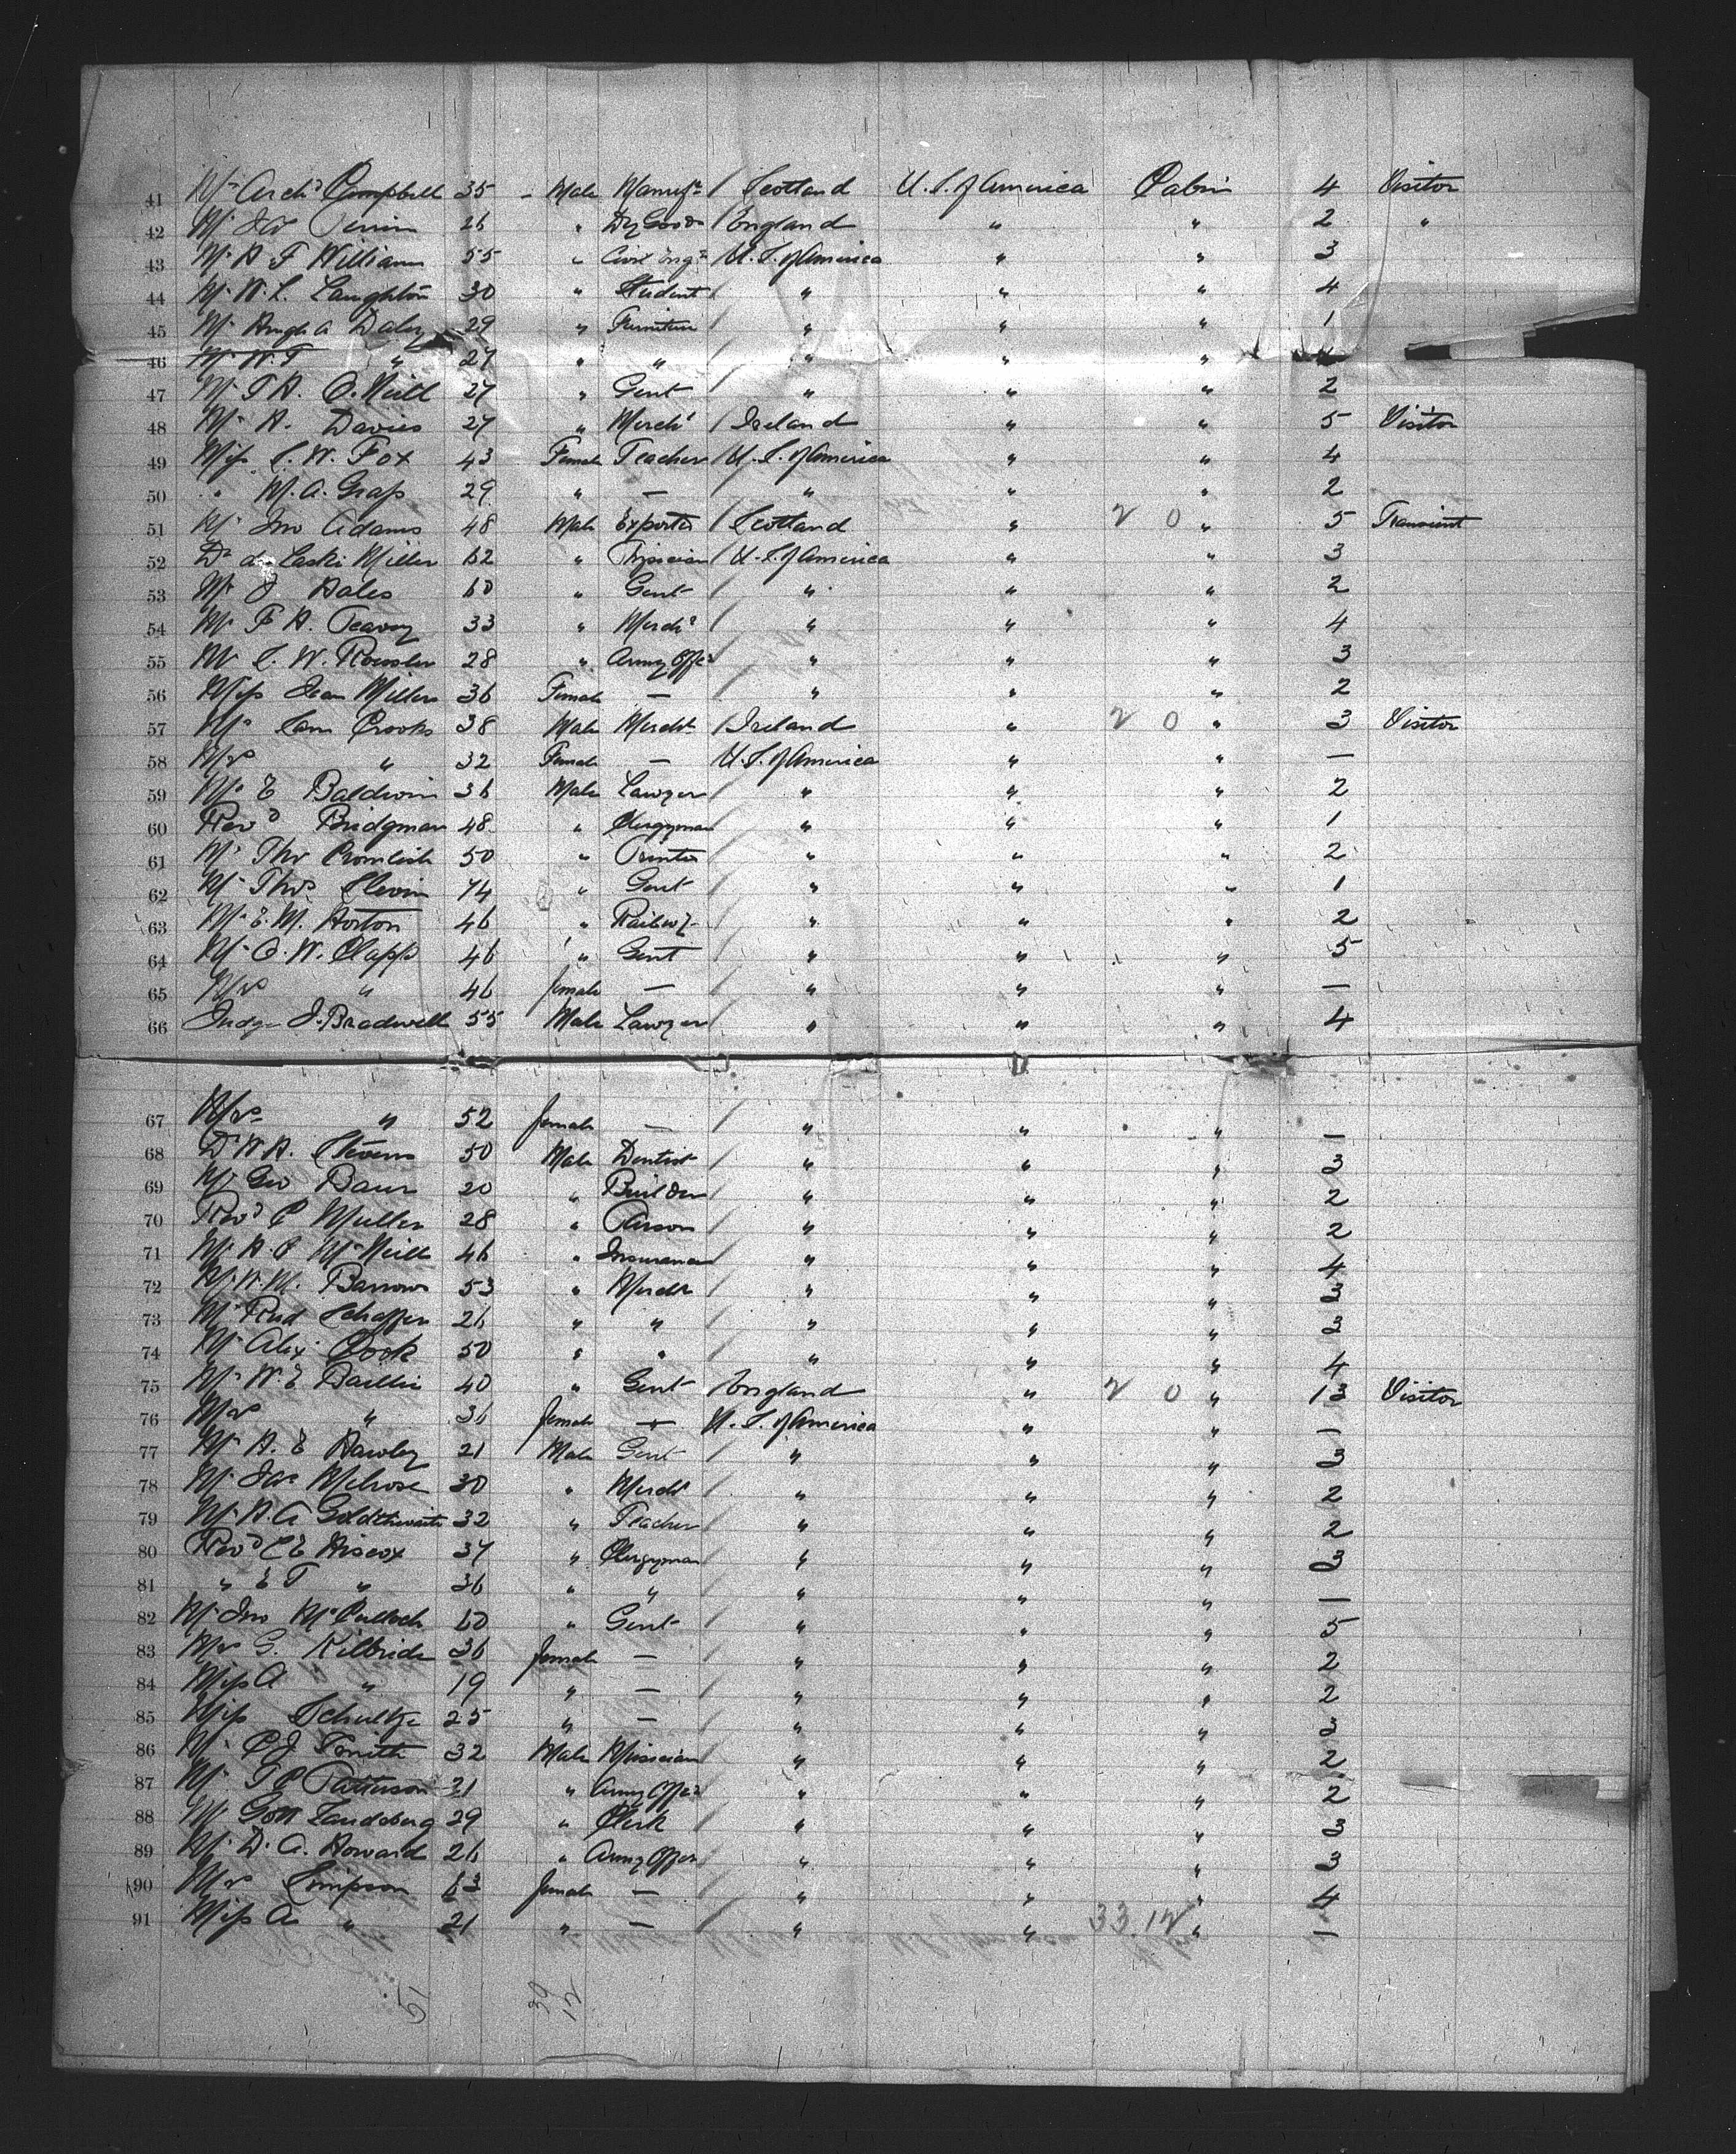 41 Mr Archd Campbell 35 - Male Manufr Scotland U.S. of America Cabin 4 Visitor
42 Mr 26 " Dry Goods England " " 2 "
43 Mr H. F. Williams 55 " Civil Engr U.S. of America " " 3
44 Mr W. L. Laughton 30 " Student " " " 4
45 Mr Hugh A Daly 29 " Furniture " " " 1
46 Mr W T " 27 " " " " "
47 Mr T. H. O. Neill 27 " Gent " " " 2
48 Mr A. Davies 27 " Mercht Ireland " " 5 Visitor
49 Miss L. W. Fox 43 Female Teacher U.S. of America " " 4
50 " M. A. 29 " — " " " 2
51 Mr Jno Adams 48 Male Exporter Scotland " 2 0 " 5 Transient
52 Dr de Laski Miller 62 " Phisician U.S. of America " " 3
53 Mr J Hales 60 " Gent " " " 2
54 Mr F. H. 33 " Mercht " " " 4
55 Mr S. W. Roessler 28 " Army Offcr " " " 3
56 Miss Jean Miller 36 Female — " " " 2
57 Mr Sam Crooks 38 Male Mercht Ireland " 2 0 " 3 Visitor
58 Mrs " 32 Female — U.S. of America " " —
59 Mr E Baldwin 36 Male Lawyer " " " 2
60 Revd Bridgman 48 " Clergyman " " " 1
61 Mr Thos Cromlish 50 " Printer " " " 2
62 Mr Thos Slevin 74 " Gent " " " 1
63 Mr E. M. Horton 46 " Railway " " " 2
64 Mr O. W. Clapp 46 " Gent " " " 5
65 Mrs " 46 female — " " " —
66 Judge J. Bradwell 55 Male Lawyer " " " 4
67 Mrs " 52 female — " " " —
68 Dr W. H. Stevens 50 Male Dentist " " " 3
69 Mr Geo Baur 20 " Builder " " " 2
70 Revd C Muller 28 " Parson " " " 2
71 Mr H. C McNeill 46 " Insurance " " " 4
72 Mr W. M. Barrows 53 " Mercht " " " 3
73 Mr Rud Schaffer 26 " " " " " 3
74 Mr Alex Cook 50 " " " " " 4
75 Mr W. E Baillie 40 " Gent England " 2 0 " 13 Visitor
76 Mrs " 36 female — U.S. of America " " —
77 Mr H. E Hawley 21 Male Gent " " " 3
78 Mr Jas Melrose 30 " Mercht " " " 2
79 Mr H. A Goldthwaite 32 " Teacher " " " 2
80 Revd C E Hiscox 37 " Clergyman " " " 3
81 " E T " 36 " " " " " 1
82 Mr Jno McCulloch 60 " Gent " " " 5
83 Mrs G. Kilbride 36 female — " " " 2
84 Miss A " 19 " — " " " 2
85 Miss Schultze 25 " — " " " 3
86 Mr C J Smith 32 Male Musician " " " 2
87 Mr T C Patterson 21 " Army Offcr " " " 2
88 Mr Gott Landsberg 29 " Clerk " " " 3
89 Mr D. A. Howard 26 " Army Offcr " " " 3
90 Mrs Simpson 63 female — " " " 4
91 Miss A " 21 " — " " 33.12 " 1
51 39
12